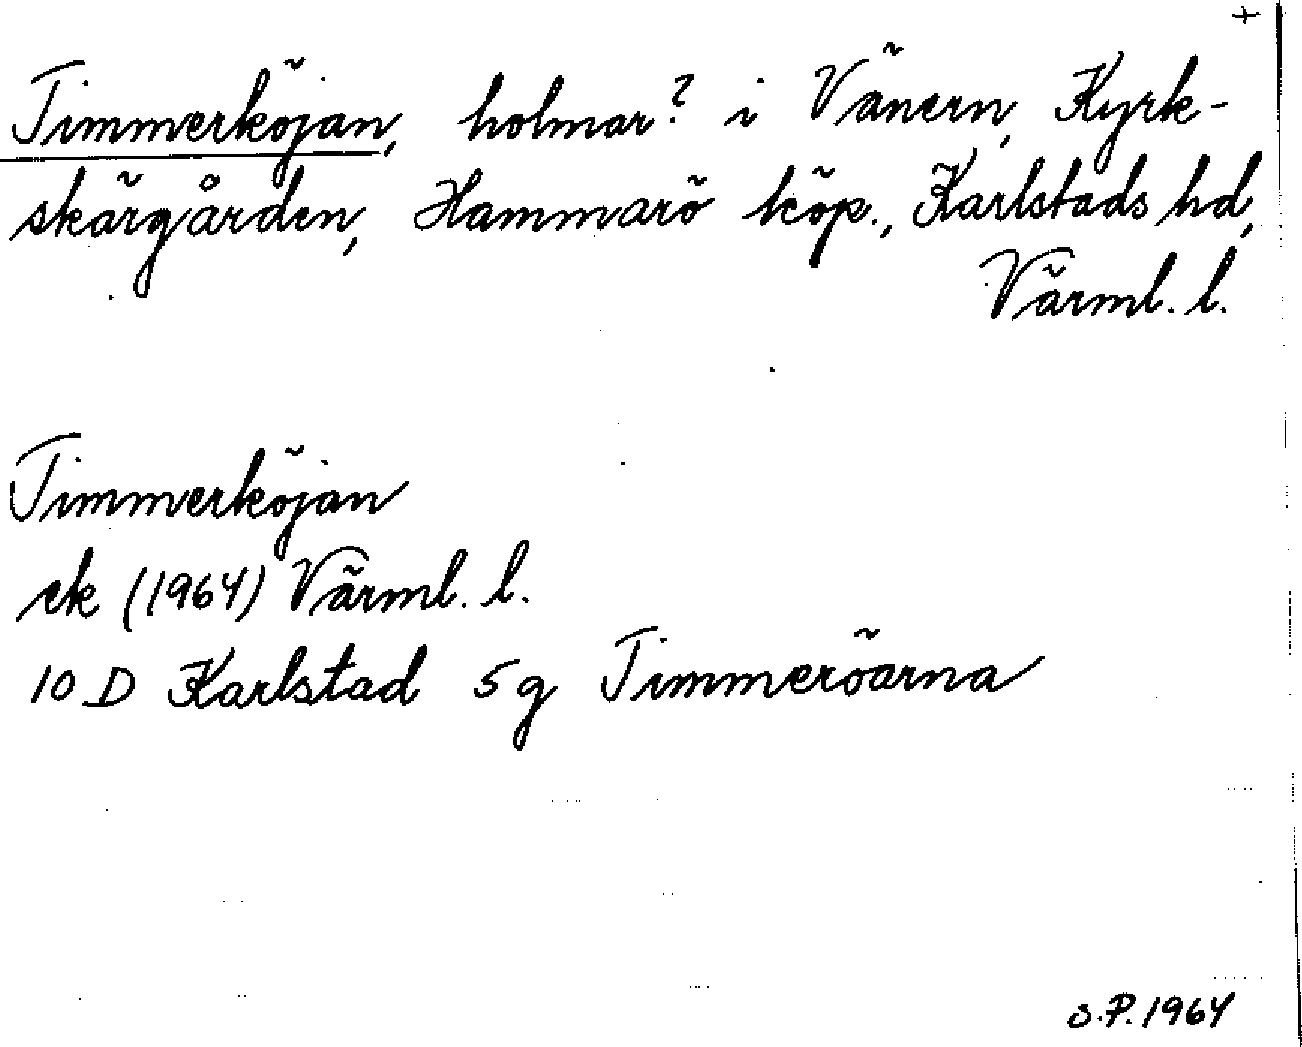 +
Timmerköjan, holmar? i Vänern, Kyrk-
skärgården, Hammarö köp., Karlstads hd,
Värml. l.
Timmerköjan
ek (1964) Värml. l.
10 D Karlstad 5 g Timmeröarna
S.P. 1964